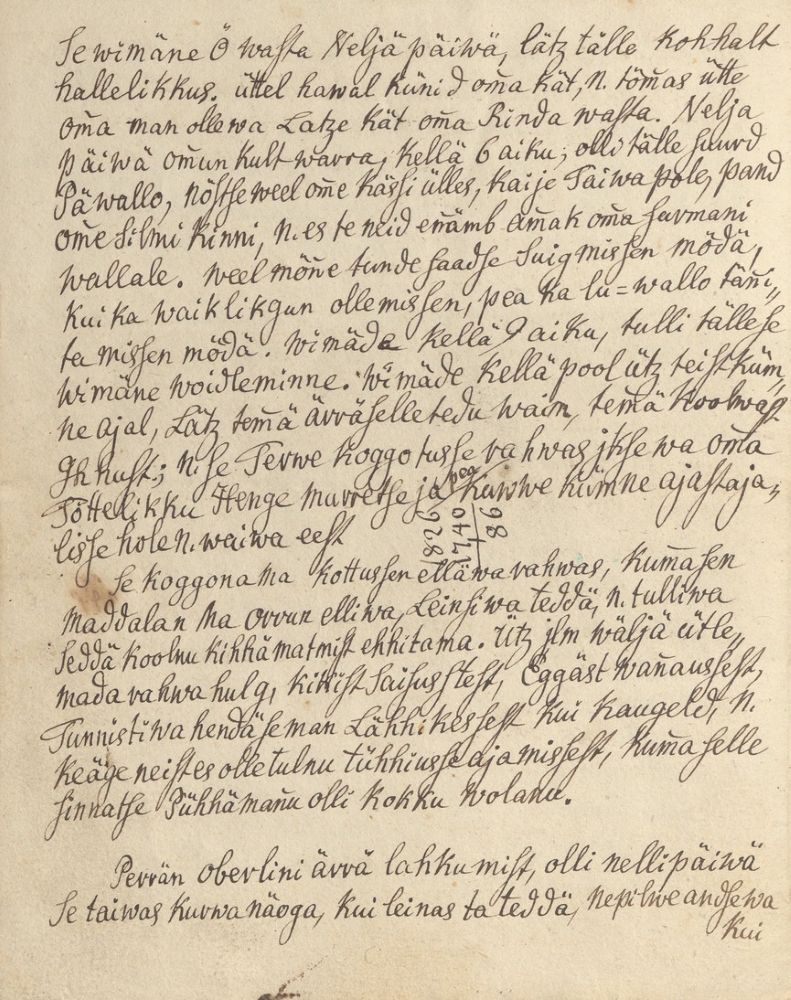 Se wimäne Ö wasta Neljä päiwä, lätz tälle kohhalt
hallelikkus. üttel hawal künid om̄a kät, n. töm̄as ütte
om̄a man ollewa Latze kät om̄a Rinda wasta. Nelja
päiwä om̄un kult warra, kellä 6 aiku, olli tälle suurd
Päwallo, nöstse weel om̄e kässi ülles, kaije Taiwa pole, pand
om̄e Silmi kinni, n. es te neid en̄ämb am̄ak om̄a surmani
wallale. weel mön̄e tunde saadse Suigmissen mödä,
kui ka waiklikgun ollemissen, pea ka lu=wallo tän̄i„
ta missen mödä. wimäde kellä 9 aiku, tulli tälle se
wimäne woidleminne. Wimäde kellä pool ütz teist küm„
ne ajal, Lätz tem̄ä ärräselletedu waim, tem̄ä koolwast
Ihnust; n. se Terwe koggotusse rahwas jksewa om̄a
Töttelikku Henge murretse ja pea kuwwe kümne ajastaja„
lisse hole n. waiwa eest
1826
1740
86
Se koggona Ma kottussen ellä wa rahwas, kum̄asen
maddalan Ma orrun elliwa, Leinsiwa teddä, n. tulliwa
seddä koolnu kihhä matmist ehhitama. Ütz jlm wäljä ütle„
mada rahwa hulg, kikist Saisusstest, Eggäst wan̄aussest,
Tunnistiwa hendäse man Lähhikessest kui kaugeld, n.
keäge neist es olle tulnu tühhiusse ajamissest, kum̄a selle
sinnatse Pühhä man̄u olli kokku wolanu.
Perrän oberlini ärrä lahkumist, olli nelli päiwä
Se taiwas kurwa näoga, kui leinas ta teddä, ne pilwe andsewa
kui